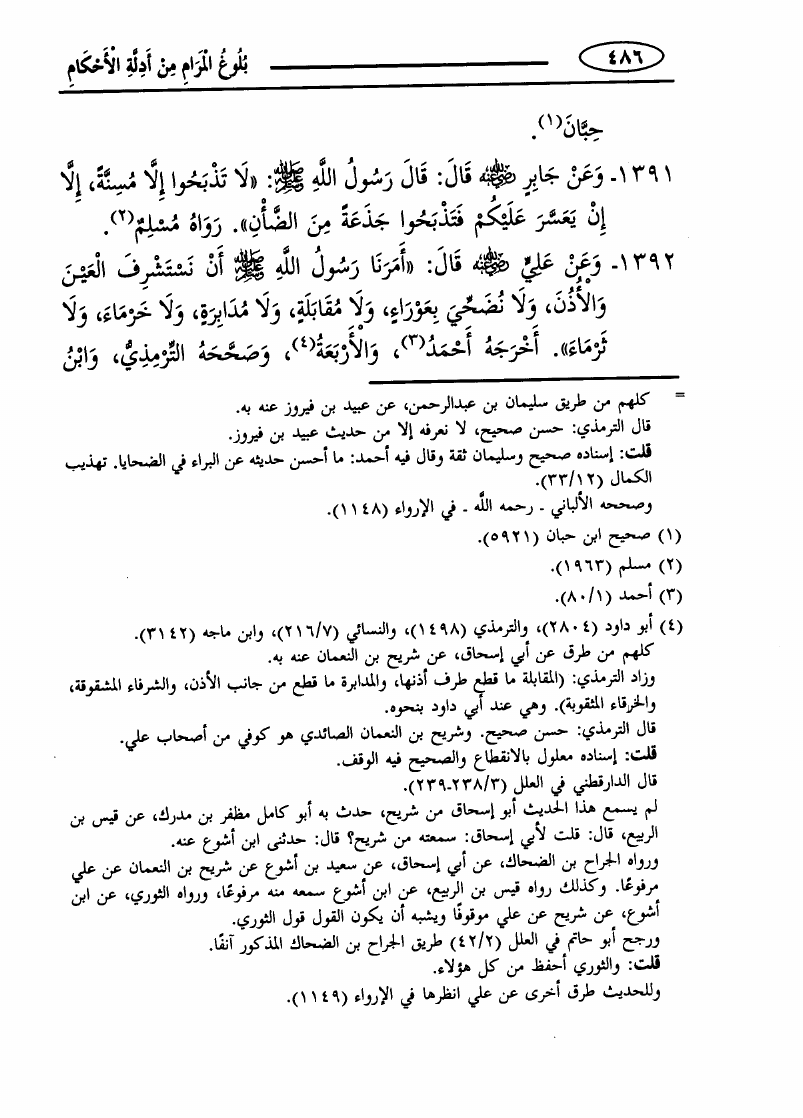 ٤٨٦ بُلُوغُ الْمَرَامِ مِنْ أَدِلَّةِ الْأَحْكَامِ
حِبَّانَ(١).
١٣٩١- وَعَنْ جَابِرٍ ﷺ قَالَ: قَالَ رَسُولُ اللَّهِ ﷺ: «لَا تَذْبَحُوا إِلَّا مُسِنَّةً، إِلَّا
إِنْ يَعَسَّرَ عَلَيْكُمْ فَتَذْبَحُوا جَذَعَةً مِنَ الضَّأْنِ». رَوَاهُ مُسْلِمٌ(٢).
١٣٩٢- وَعَنْ عَلِيٍّ رضي الله عنه قَالَ: «أَمَرَنَا رَسُولُ اللَّهِ ﷺ أَنْ نَسْتَشْرِفَ الْعَيْنَ
وَالْأُذُنَ، وَلَا نُضَحِّيَ بِعَوْرَاءٍ، وَلَا مُقَابَلَةٍ، وَلَا مُدَابِرَةٍ، وَلَا خَرْمَاءَ، وَلَا
ثَرْمَاءَ». أَخْرَجَهُ أَحْمَدُ(٣)، وَالْأَرْبَعَةُ(٤)، وَصَحَّحَهُ التِّرْمِذِيُّ، وَابْنُ
= كلهم من طريق سليمان بن عبدالرحمن، عن عبيد بن فيروز عنه به.
قال الترمذي: حسن صحيح، لا نعرفه إلا من حديث عبيد بن فيروز.
قلت: إسناده صحيح وسليمان ثقة وقال فيه أحمد: ما أحسن حديثه عن البراء في الضحايا. تهذيب
الكمال (٣٣/١٢).
وصححه الألباني ـ رحمه اللَّه ـ في الإرواء (١١٤٨).
(١) صحيح ابن حبان (٥٩٢١).
(٢) مسلم (١٩٦٣).
(٣) أحمد (٨٠/١).
(٤) أبو داود (٢٨٠٤)، والترمذي (١٤٩٨)، والنسائي (٢١٦/٧)، وابن ماجه (٣١٤٢).
كلهم من طرق عن أبي إسحاق، عن شريح بن النعمان عنه به.
وزاد الترمذي: (المقابلة ما قطع طرف أذنها، والمدابرة ما قطع من جانب الأذن، والشرفاء المشقوقة،
والخرقاء المثقوبة). وهي عند أبي داود بنحوه.
قال الترمذي: حسن صحيح. وشريح بن النعمان الصائدي هو كوفي من أصحاب علي.
قلت: إسناده معلول بالانقطاع والصحيح فيه الوقف.
قال الدارقطني في العلل (٢٣٨/٣ـ٢٣٩).
لم يسمع هذا الحديث أبو إسحاق من شريح، حدث به أبو كامل مظفر بن مدرك، عن قيس بن
الربيع، قال: قلت لأبي إسحاق: سمعته من شريح؟ قال: حدثنى ابن أشوع عنه.
ورواه الجراح بن الضحاك، عن أبي إسحاق، عن سعيد بن أشوع عن شريح بن النعمان عن علي
مرفوعًا. وكذلك رواه قيس بن الربيع، عن ابن أشوع سمعه منه مرفوعًا، ورواه الثوري، عن ابن
أشوع، عن شريح عن علي موقوفًا ويشبه أن يكون القول قول الثوري.
ورجح أبو حاتم في العلل (٤٢/٢) طريق الجراح بن الضحاك المذكور آنفًا.
قلت: والثوري أحفظ من كل هؤلاء.
وللحديث طرق أخرى عن علي انظرها في الإرواء (١١٤٩).